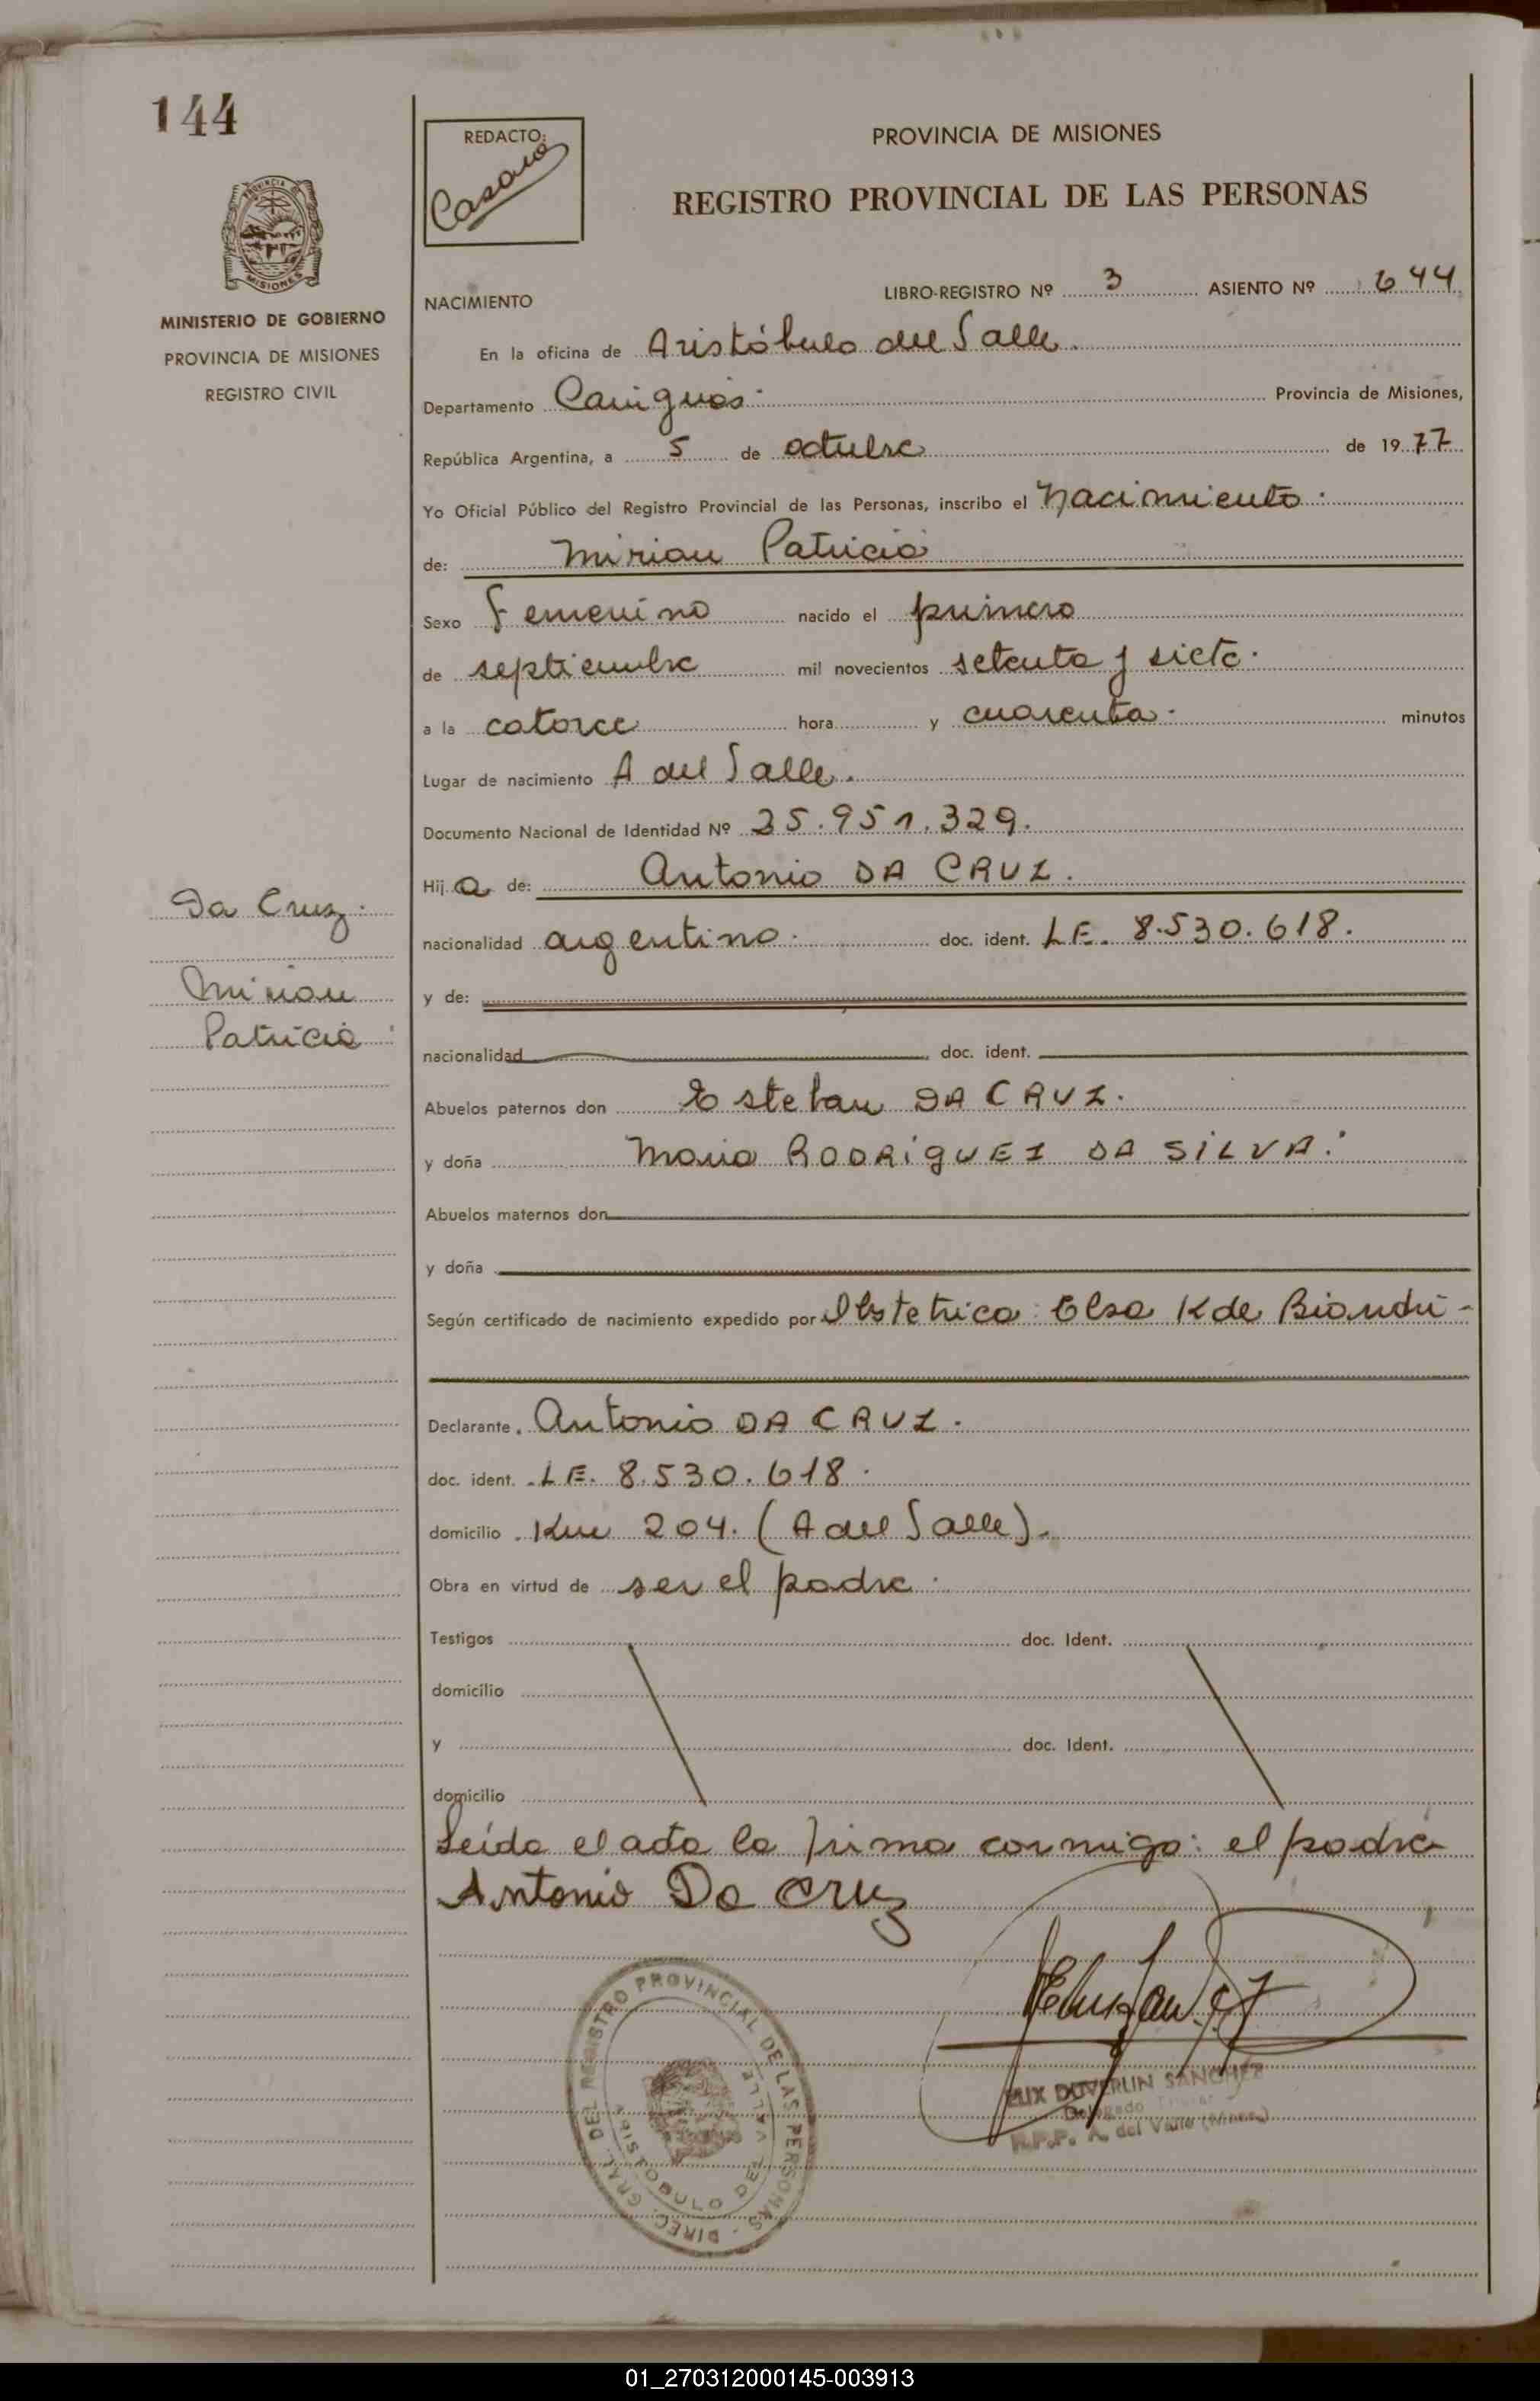 144
REDACTO:
Casaro
PROVINCIA DE MISIONES
REGISTRO PROVINCIAL DE LAS PERSONAS
MINISTERIO DE GOBIERNO
PROVINCIA DE MISIONES
REGISTRO CIVIL
NACIMIENTO LIBRO-REGISTRO Nº 3 ASIENTO Nº 644
En la oficina de Aristóbulo del Valle.
Departamento Cainguás Provincia de Misiones,
República Argentina, a 5 de octubre de 1977
Yo Oficial Público del Registro Provincial de las Personas, inscribo el nacimiento
de: Mirian Patricia
Sexo Femenino nacido el primero
de septiembre mil novecientos setenta y siete.
a la catorce hora y cuarenta minutos
Lugar de nacimiento A del Valle.
Documento Nacional de Identidad Nº 25.951.329.
Hij a de: Antonio DA CRUZ.
nacionalidad argentino. doc. ident. L.E. 8.530.618.
y de:
nacionalidad doc. ident.
Abuelos paternos don Esteban DA CRUZ.
y doña Maria RODRiGUEZ DA SiLVA.
Abuelos maternos don
y doña
Según certificado de nacimiento expedido por Obstetrica: Elsa K de Biondri -
Declarante. Antonio DA CRUZ.
doc. ident. L.E. 8.530.618.
domicilio Km 204. (A del Valle).
Obra en virtud de ser el padre.
Testigos doc. Ident.
domicilio
y doc. Ident.
domicilio
Leída el acta la firma conmigo: el padre
Antonio Da Cruz
Da Cruz.
Mirian
Patricia
DIREC. GRAL. DEL REGISTRO PROVINCIAL DE LAS PERSONAS
ARISTOBULO DEL VALLE
DUVERLIN SANCHEZ
Delegado Titular
R.P.P. A. del Valle (Mnes.)
01_270312000145-003913